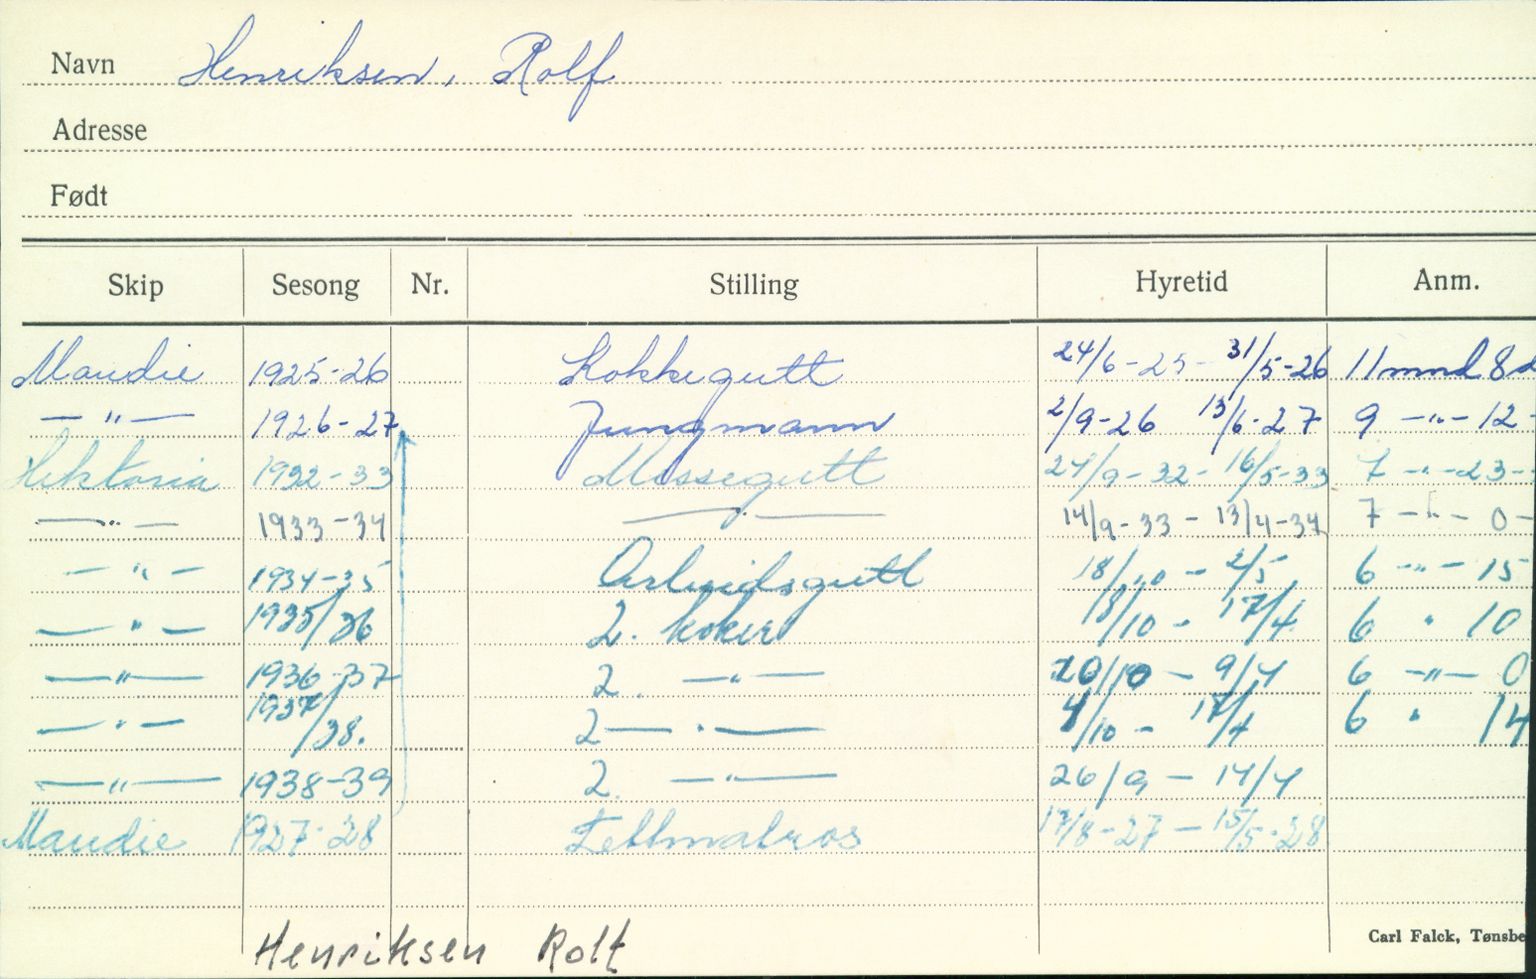 Navn Henriksen, Rolf
Adresse
Født
Skip Sesong Nr. Stilling Hyretid Anm.
Maudie 1925-26 Kokkegutt 24/6-25- 31/5-26 11 mnd 8 d
— " — 1926-27 Jungmann 2/9-26 13/6-27 9 — " — 12
Hektoria 1932-33 Messegutt 27/9-32- 16/5-33 7 — " — 23 -
— " — 1933-34 — " — 14/9-33 - 13/4-34 7 — " — 0 -
— " — 1934-35 Arbeidsgutt 18/10 - 2/5 6 — " — 15
— " — 1935/36 2. koker 18/10 - 17/4 6 " 10
— " — 1936-37 2. — " — 10/10 - 9/4 6 — " — 0
— " — 1937/38. 2 — " — 4/10 - 17/4 6 " 14
— " — 1938-39 2. — " — 26/9 - 14/4
Maudie 1927-28 Lettmatros 17/8-27 - 15/5-28
Henriksen Rolf
Carl Falck, Tønsbe